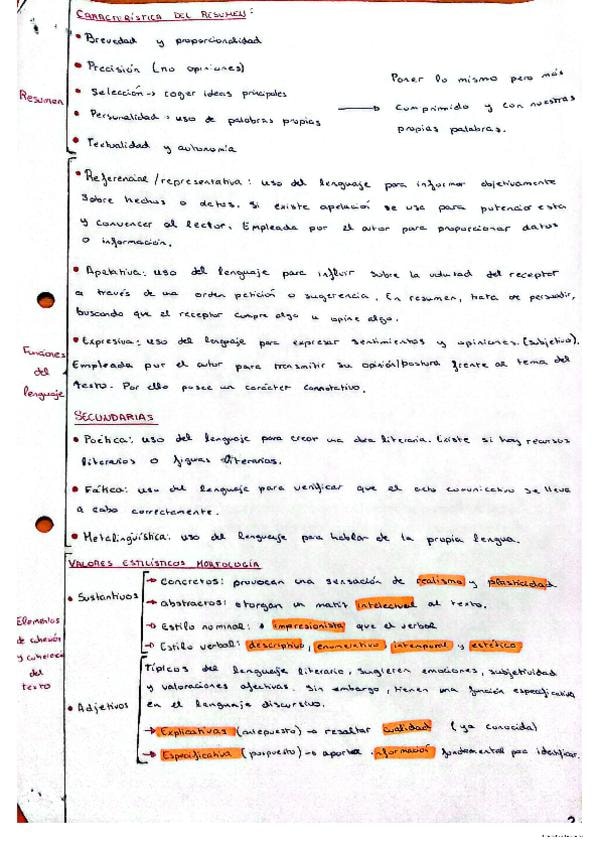 CARACTERÍSTICA DEL RESUMEN:
• Brevedad y proporcionalidad
• Precisión (no opiniones)
• Selección → coger ideas principales
• Personalidad → uso de palabras propias
• Textualidad y autonomía
Resumen
Poner lo mismo pero más
comprimido y con nuestras
propias palabras.
• Referencial/representativa: uso del lenguaje para informar objetivamente
sobre hechos o datos. Si existe apelación se usa para potenciar esta
y convencer al lector. Empleada por el autor para proporcionar datos
o información.
• Apelativa: uso del lenguaje para influir sobre la voluntad del receptor
a través de una orden petición o sugerencia. En resumen, trata de persuadir,
buscando que el receptor cumpla algo u opine algo.
Funciones
del
lenguaje
• Expresiva: uso del lenguaje para expresar sentimientos y opiniones. (subjetivo).
Empleada por el autor para transmitir su opinión/postura frente al tema del
texto. Por ello posee un carácter connotativo.
SECUNDARIAS
• Poética: uso del lenguaje para crear una obra literaria. Existe si hay recursos
literarios o figuras literarias.
• Fática: uso del lenguaje para verificar que el acto comunicativo se lleva
a cabo correctamente.
• Metalingüística: uso del lenguaje para hablar de la propia lengua.
VALORES ESTILÍSTICOS MORFOLOGÍA
Elementos
de cohesión
y coherencia
del
texto
• Sustantivos
→ concretos: provocan una sensación de realismo y plasticidad
→ abstractos: otorgan un matiz intelectual al texto.
→ Estilo nominal: + impresionista que el verbal
→ Estilo verbal: descriptivo, enumerativo, intemporal y estético
• Adjetivos
Típicos del lenguaje literario, sugieren emociones, subjetividad
y valoraciones afectivas. Sin embargo, tienen una función especificativa
en el lenguaje discursivo.
→ Explicativas (antepuesto) → resaltar cualidad (ya conocida)
→ Especificativa (pospuesto) → aporta información fundamental para identificar.
2